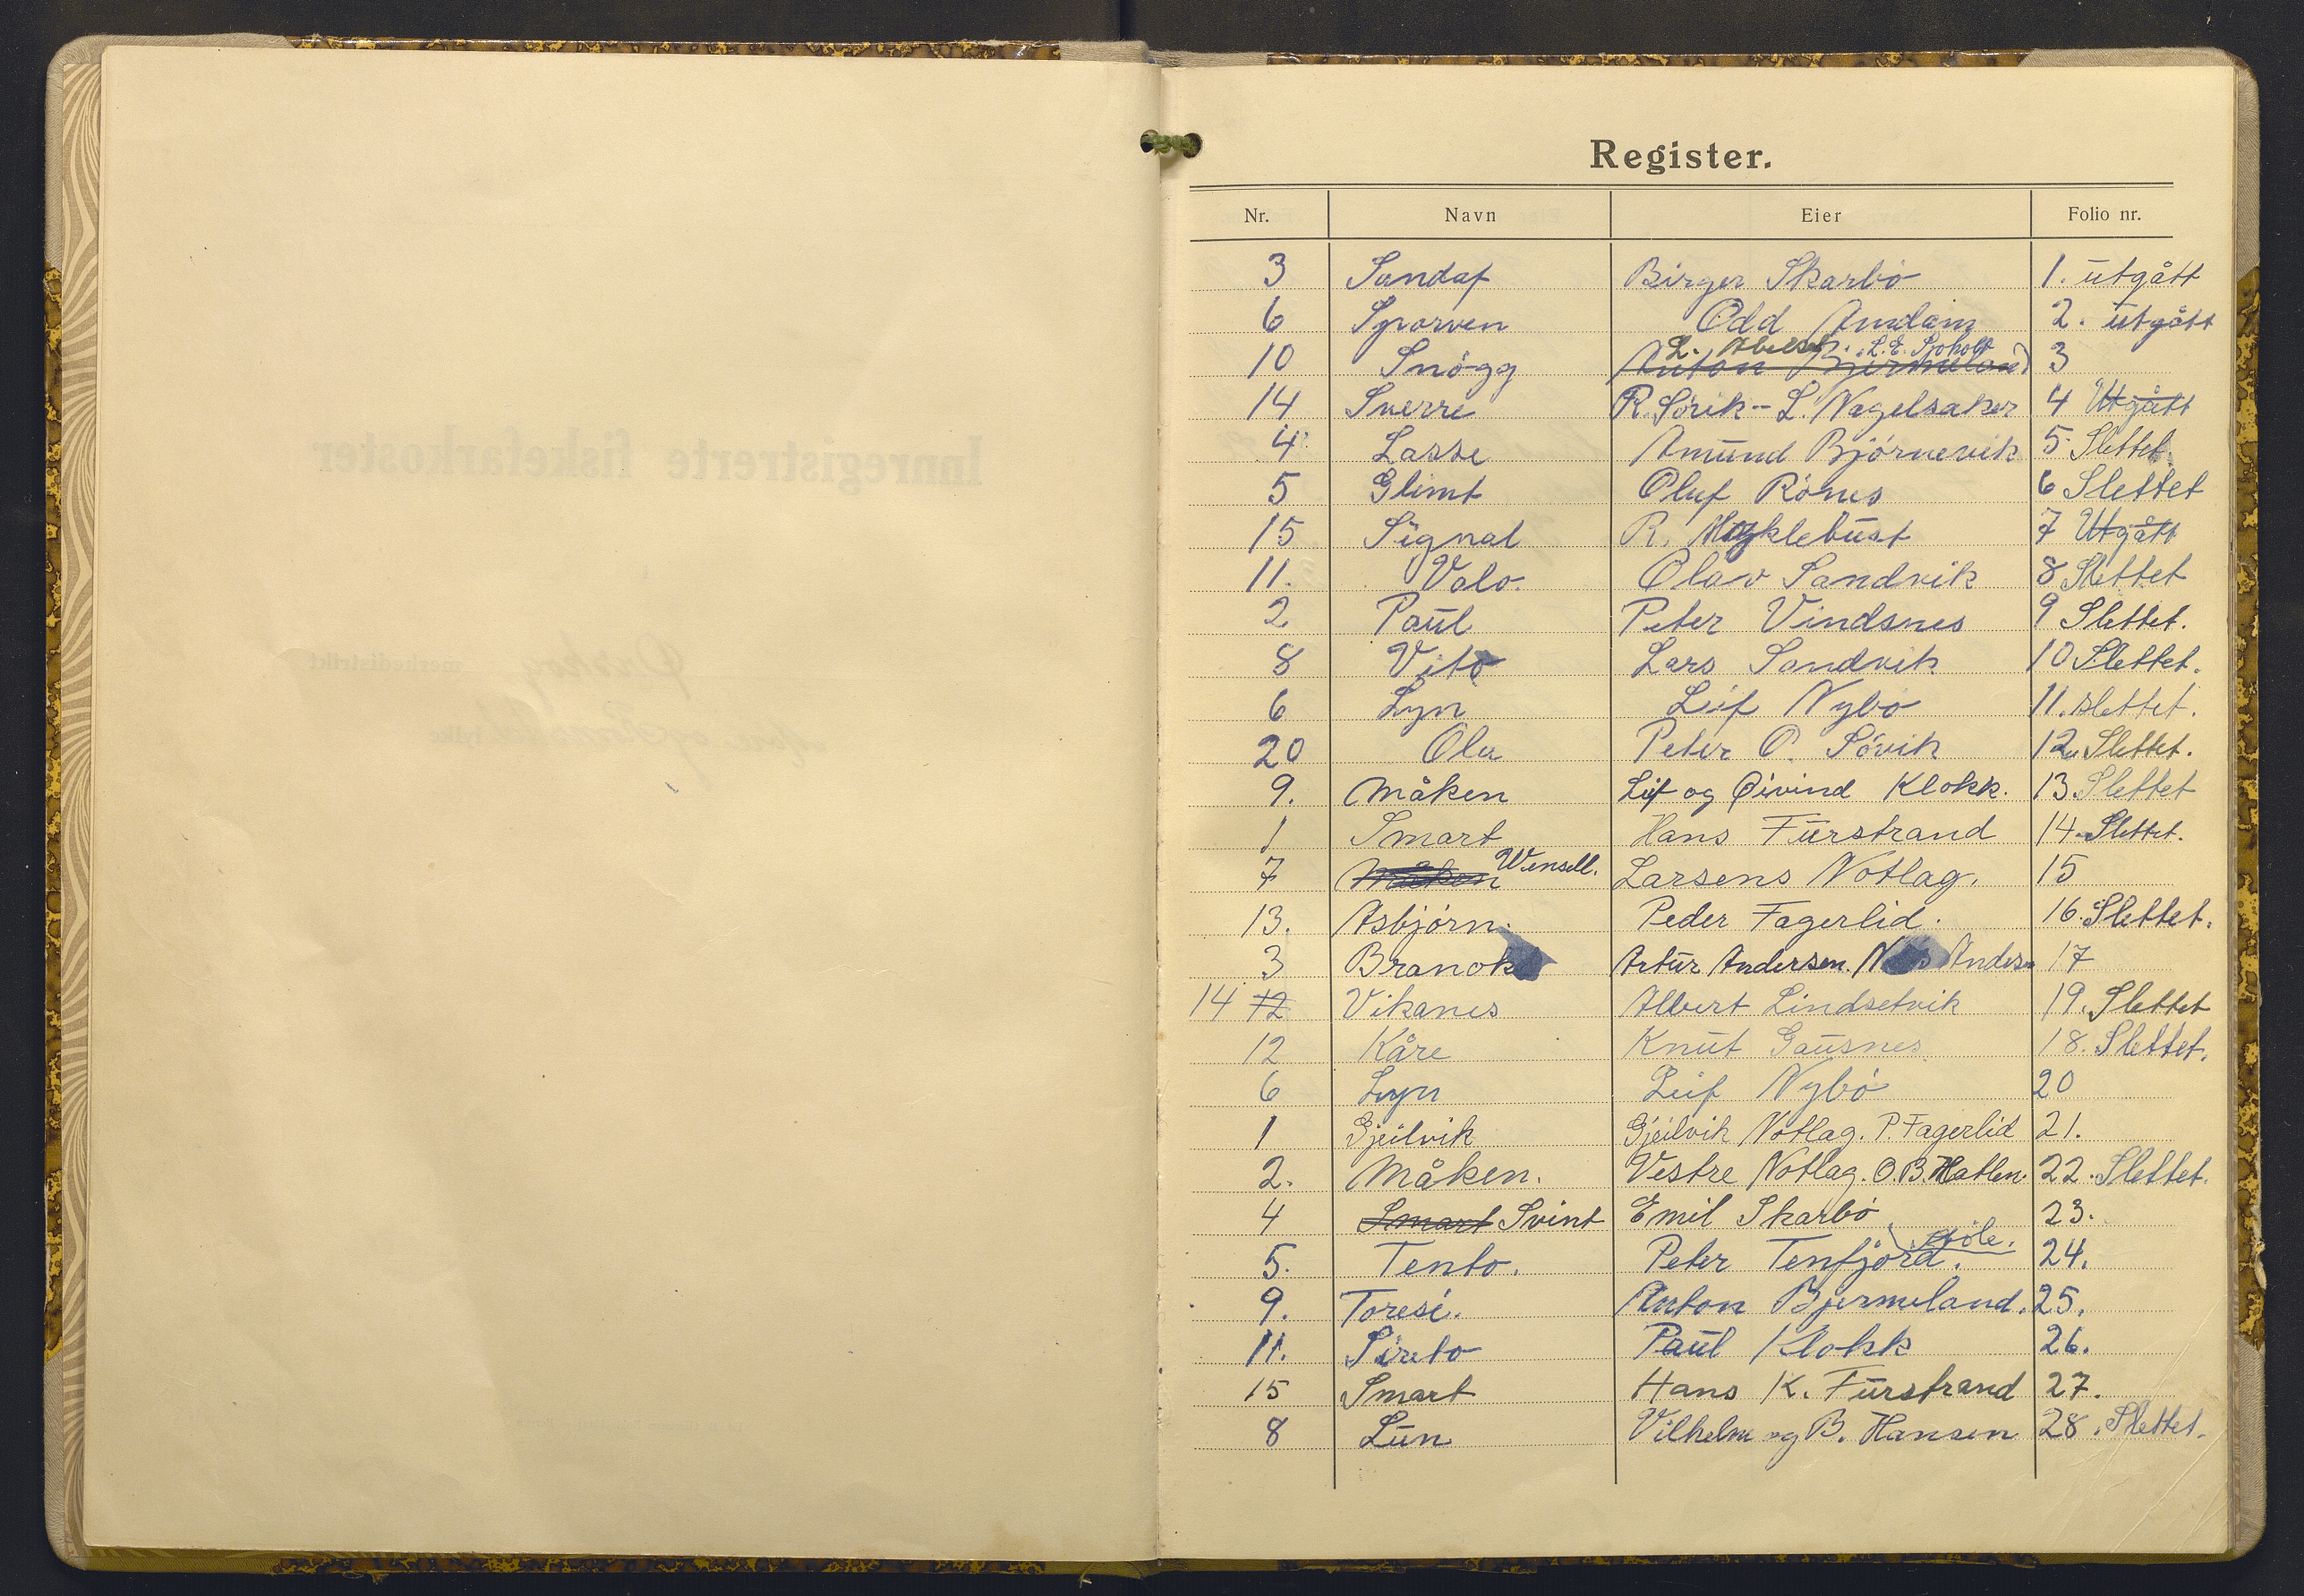 Register.
Nr. Navn Eier Folio nr.
3 Sandøy Birger Skarbö 1. utgått
6 Sporven Odd Amdam 2. utgått
L. Abelseth. L. E. Sjøholt
10 Snögg Anton Bjermeland 3
14 Sverre R. Sörik - L. Nagelsaker 4 Utgått
4 Lasse Amund Björnevik 5 Slettet.
5 Glimt Oluf Rönes 6 Slettet
15 Signal R. Myklebust 7 Utgått
11. Valo. Olav Sandvik 8 Slettet
2 Paul Peter Vindsnes 9 Slettet.
8 Vito Lars Sandvik 10 Slettet.
6 Lyn Leif Nybö 11. slettet.
20 Ola Peter O. Sövik 12. Slettet.
9. Måken Leif og Øivind Klokk. 13. Slettet
1 Smart Hans Furstrand 14. Slettet.
7 Måken Wensell. Larsens Notlag. 15
13. Asbjörn. Peder Fagerlid. 16. Slettet.
3 Branok Artur Andersen. Anders 17
14 12 Vikanes Albert Lindsetvik 19. Slettet
12 Kåre Knut Gausnes 18. Slettet.
6 Lyn Leif Nybö 20
1 Gjeilvik Gjeilvik Notlag. P. Fagerlid 21.
2. Måken. Vestre Notlag. O. B. Hatlen. 22. Slettet.
4 Smart Svint Emil Skarbö 23.
5. Tento. Peter Tenfjord. 24.
9. Toresi. Anton Bjermeland. 25.
11. Sireto Paul Klokk 26.
15 Smart Hans K. Furstrand 27.
8 Lun Vilhelm og B. Hansen 28. Slettet.